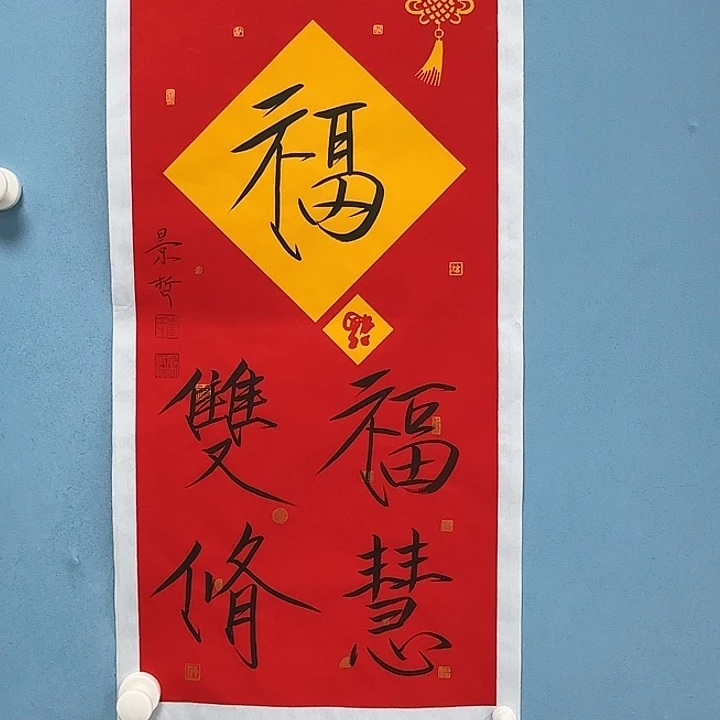 福
福慧
雙脩
景哲